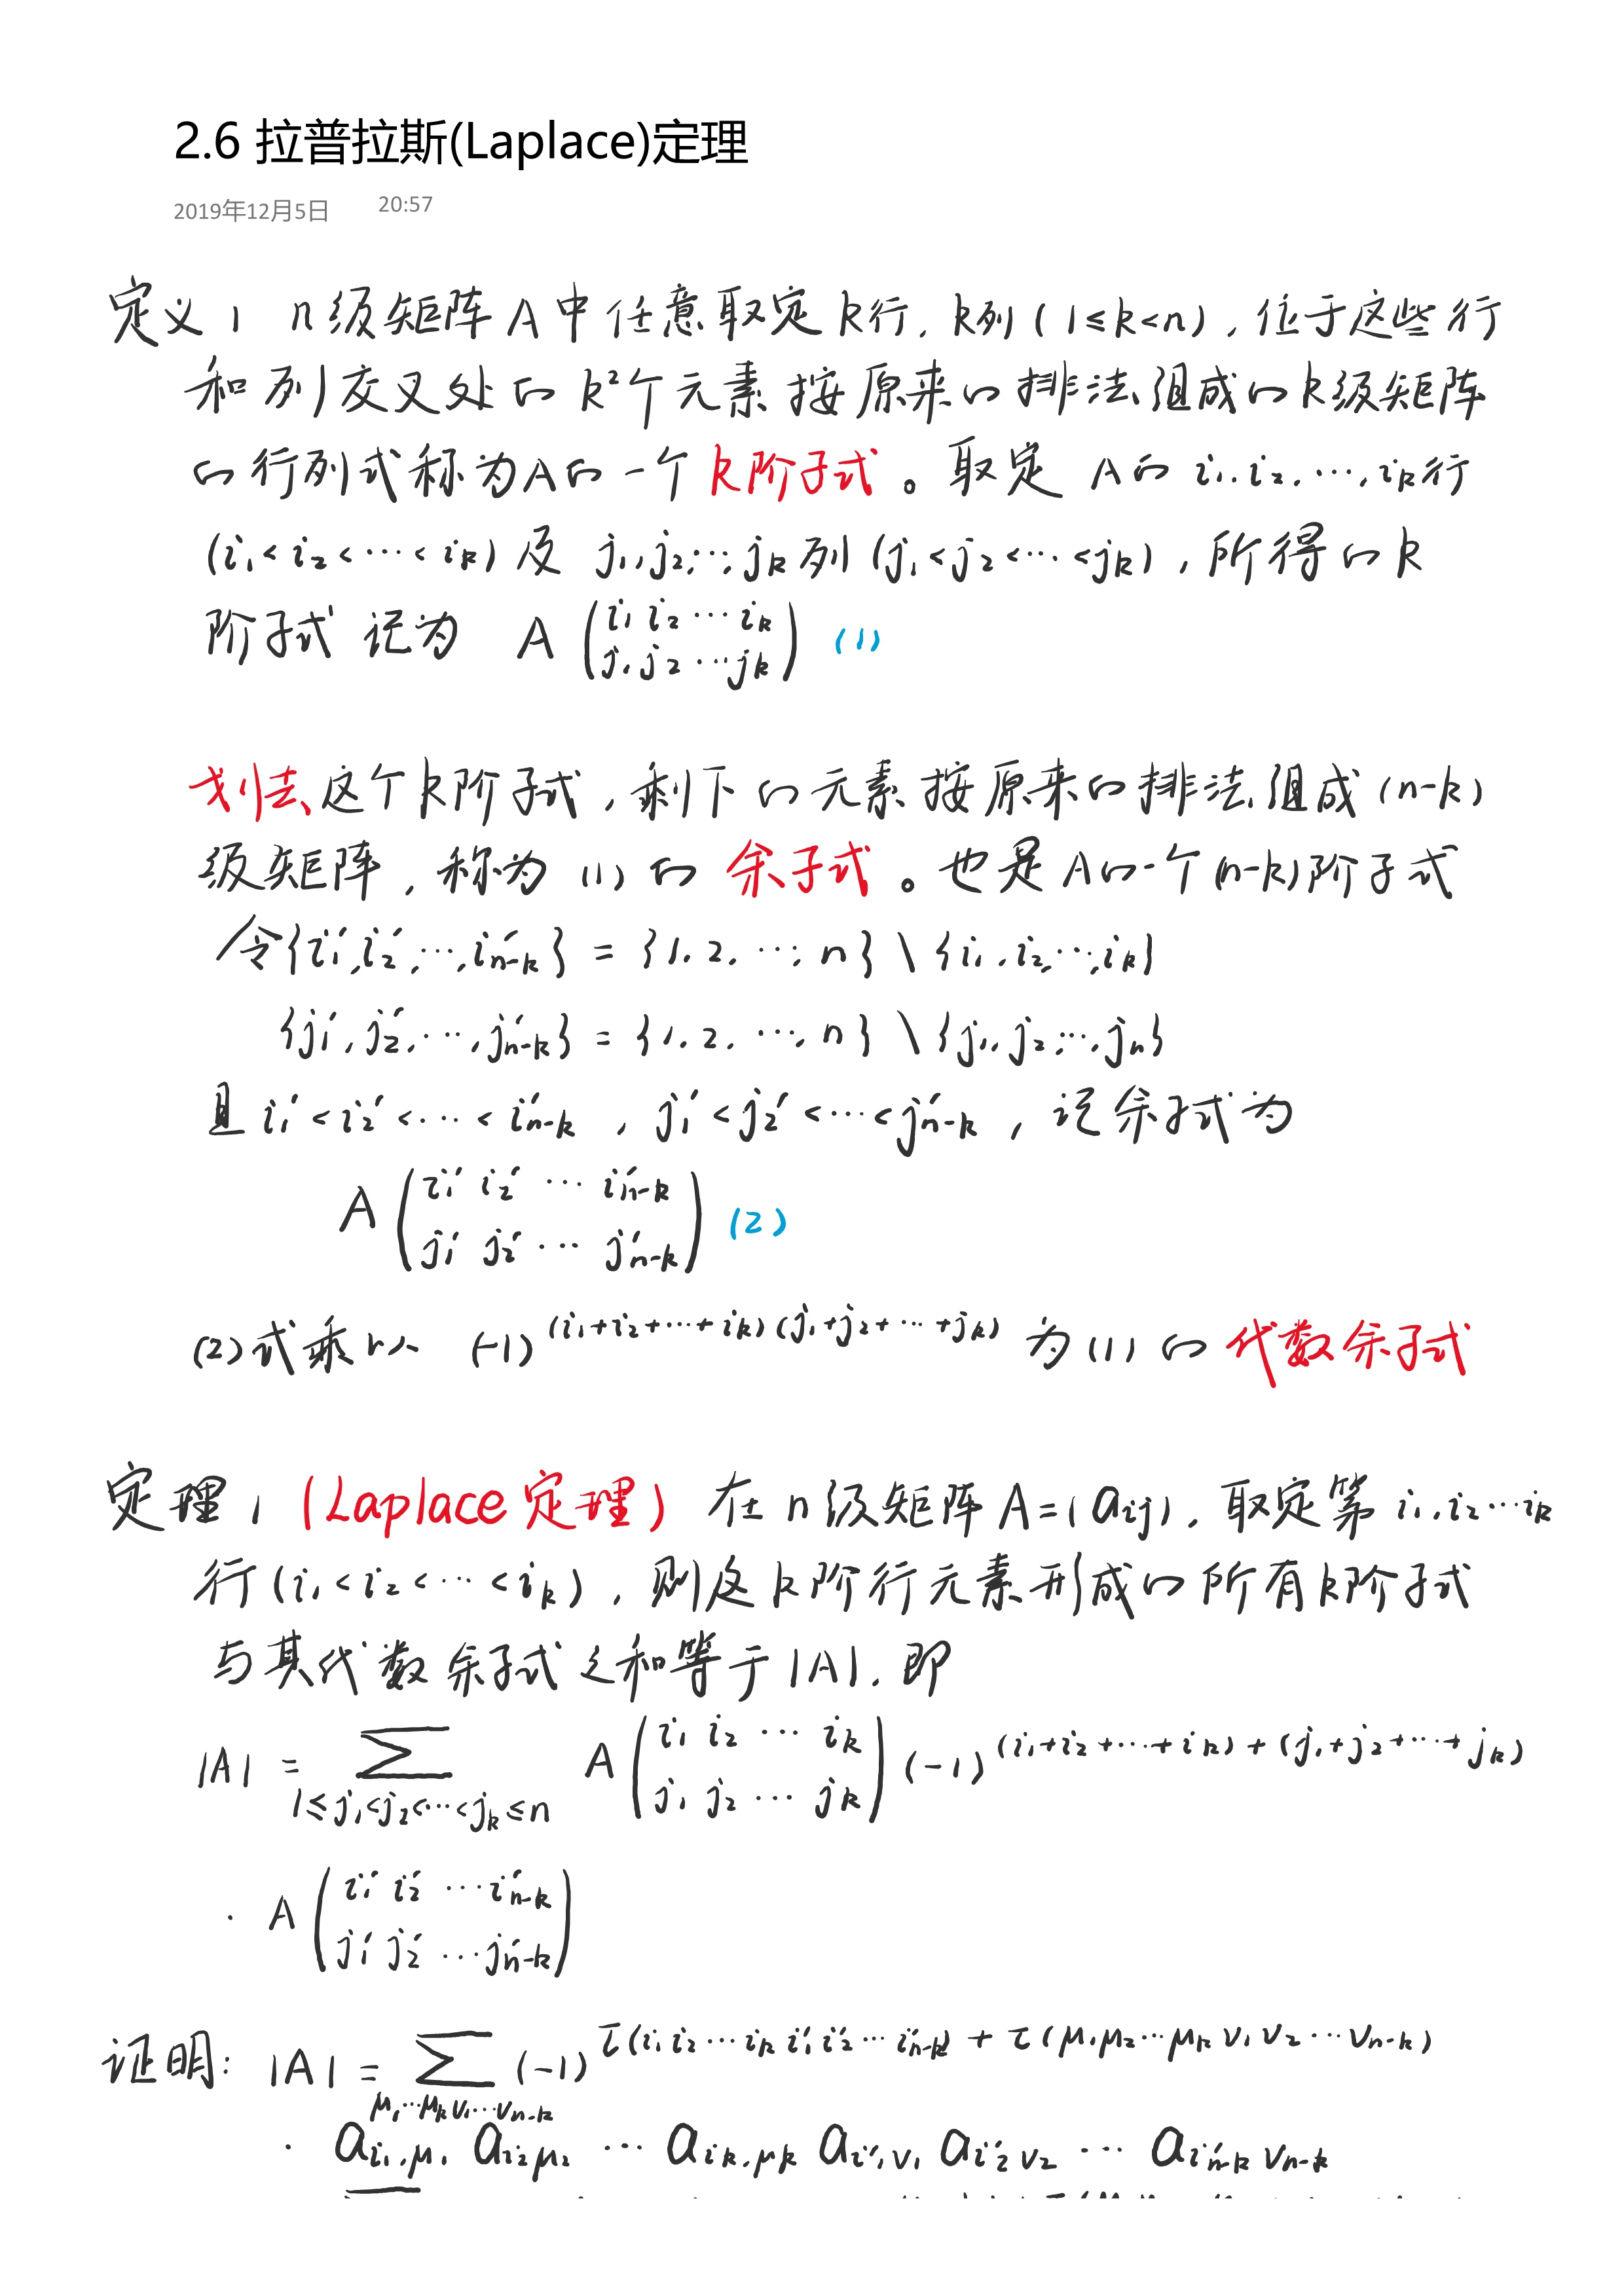 2.6 拉普拉斯(Laplace)定理
2019年12月5日 20:57
定义1 n级矩阵A中任意取定k行, k列(1≤k<n), 位于这些行
和列交叉处的k²个元素按原来的排法组成的k级矩阵
的行列式称为A的一个k阶子式。取定 A的 i₁, i₂, ⋯, iₖ行
(i₁<i₂<⋯<iₖ)及 j₁, j₂, ⋯, jₖ列(j₁<j₂<⋯<jₖ), 所得的k
阶子式 记为 A (i₁ i₂ ⋯ iₖ (1)
j₁ j₂ ⋯ jₖ)
划去这个k阶子式, 剩下的元素按原来的排法组成(n-k)
级矩阵, 称为(1)的余子式。也是A的一个(n-k)阶子式
令{i₁′, i₂′, ⋯, i′ₙ₋ₖ} = {1, 2, ⋯, n} \ {i₁, i₂, ⋯, iₖ}
{j₁′, j₂′, ⋯, j′ₙ₋ₖ} = {1, 2, ⋯, n} \ {j₁, j₂, ⋯, jₙ}
且 i₁′<i₂′<⋯<i′ₙ₋ₖ, j₁′<j₂′<⋯<j′ₙ₋ₖ, 记余子式为
A (i₁′ i₂′ ⋯ i′ₙ₋ₖ (2)
j₁′ j₂′ ⋯ j′ₙ₋ₖ)
(2)式乘以 (-1)^(i₁+i₂+⋯+iₖ)(j₁+j₂+⋯+jₖ) 为(1)的代数余子式
定理1 (Laplace定理) 在n级矩阵A=(aij), 取定第 i₁, i₂⋯iₖ
行(i₁<i₂<⋯<iₖ), 则这k阶行元素形成的所有k阶子式
与其代数余子式之和等于|A|, 即
|A| = ∑ A (i₁ i₂ ⋯ iₖ (-1)^(i₁+i₂+⋯+iₖ)+(j₁+j₂+⋯+jₖ)
1≤j₁<j₂<⋯<jₖ≤n j₁ j₂ ⋯ jₖ)
· A (i₁′ i₂′ ⋯ i′ₙ₋ₖ
j₁′ j₂′ ⋯ j′ₙ₋ₖ)
证明: |A| = ∑ (-1)^τ(i₁i₂⋯iₖ i₁′i₂′⋯i′ₙ₋ₖ) + τ(μ₁μ₂⋯μₖ ν₁ν₂⋯νₙ₋ₖ)
μ₁⋯μₖν₁⋯νₙ₋ₖ
· a_{i₁,μ₁} a_{i₂μ₂} ⋯ a_{iₖ,μₖ} a_{i₁′,ν₁} a_{i₂′ν₂} ⋯ a_{i′ₙ₋ₖ νₙ₋ₖ}